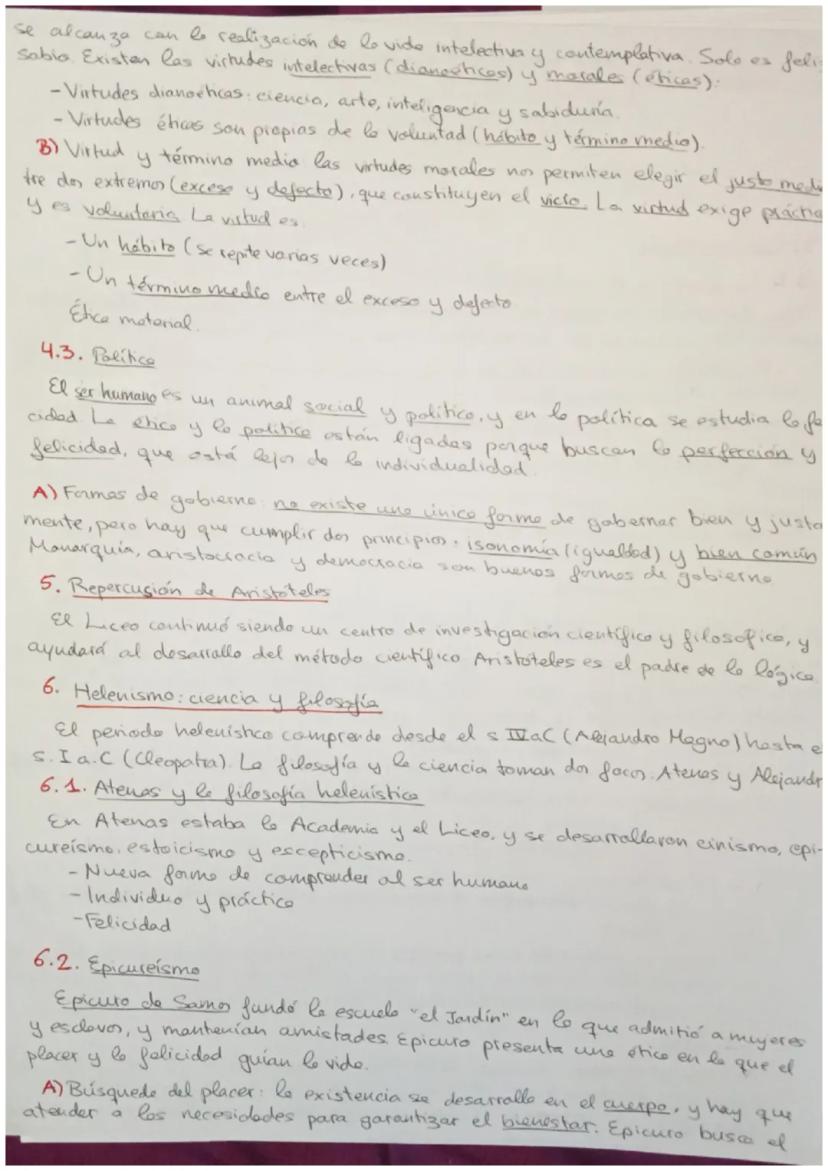 se alcanza con la realización de la vida intelectiva y contemplativa. Solo es feli
sabio. Existen las virtudes intelectivas (dianoéticas) y morales (éticas):
- Virtudes dianoéticas: ciencia, arte, inteligencia y sabiduría.
- Virtudes éticas son propias de la voluntad (hábito y término medio).
B) Virtud y término medio: las virtudes morales nos permiten elegir el justo medi
tre dos extremos (exceso y defecto), que constituyen el vicio. La virtud exige práctic
y es voluntaria. La virtud es
- Un hábito (se repite varias veces)
- Un término medio entre el exceso y defecto
Ética material.
4.3. Política
El ser humano es un animal social y político, y en la política se estudia la fe
cidad. La ética y la política están ligadas porque buscan la perfección y
felicidad, que está lejos de la individualidad.
A) Formas de gobierno: no existe una única forma de gobernar bien y justa
mente, pero hay que cumplir dos principios: isonomía (igualdad) y bien común
Monarquía, aristocracia y democracia son buenas formas de gobierno.
5. Repercusión de Aristóteles
El Liceo continuó siendo un centro de investigación científico y filosófico, y
ayudará al desarrollo del método científico. Aristóteles es el padre de la lógica.
6. Helenismo: ciencia y filosofía
El periodo helenístico comprende desde el s IV aC (Alejandro Magno) hasta e
s. I a.C (Cleopatra). La filosofía y la ciencia toman dos focos: Atenas y Alejandr
6.1. Atenas y la filosofía helenística
En Atenas estaba la Academia y el Liceo, y se desarrollaron cinismo, epi-
cureísmo, estoicismo y escepticismo.
- Nueva forma de comprender al ser humano
- Individuo y práctica
- Felicidad
6.2. Epicureísmo
Epicuro de Samos fundó la escuela "el Jardín" en la que admitió a mujeres
y esclavos, y mantenían amistades. Epicuro presenta una ética en la que el
placer y la felicidad guían la vida.
A) Búsqueda del placer: la existencia se desarrolla en el cuerpo, y hay que
atender a las necesidades para garantizar el bienestar. Epicuro busca el